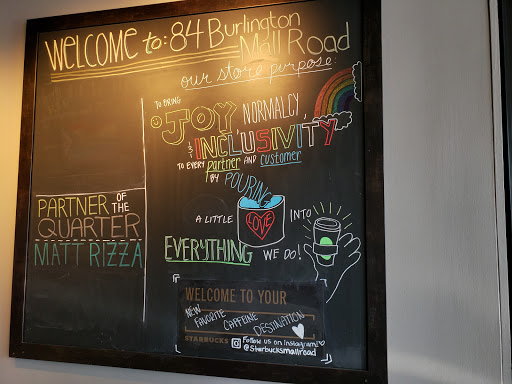 WELCOME to: 84 Burlington
Mall Road
our store purpose:
TO BRING
JOY NORMALCY,
& INCLUSIVITY
TO EVERY partner AND customer
BY POURING
A LITTLE LOVE INTO
EVERYTHING WE DO!
PARTNER OF THE
QUARTER
MATT RIZZA
WELCOME TO YOUR
NEW
FAVORITE CAFFEINE
DESTINATION
STARBUCKS Follow us on Instagram!
@starbucksmallroad